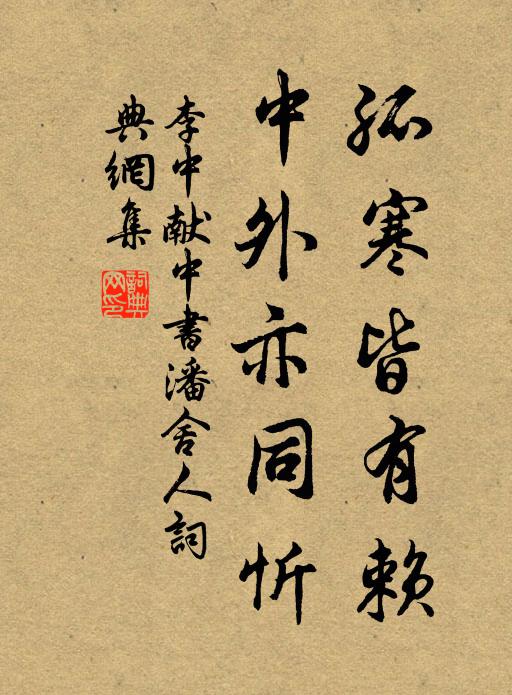 孤寒皆有赖
中外亦同忻
李中献中書潘舍人詞
典網集
詞典网印